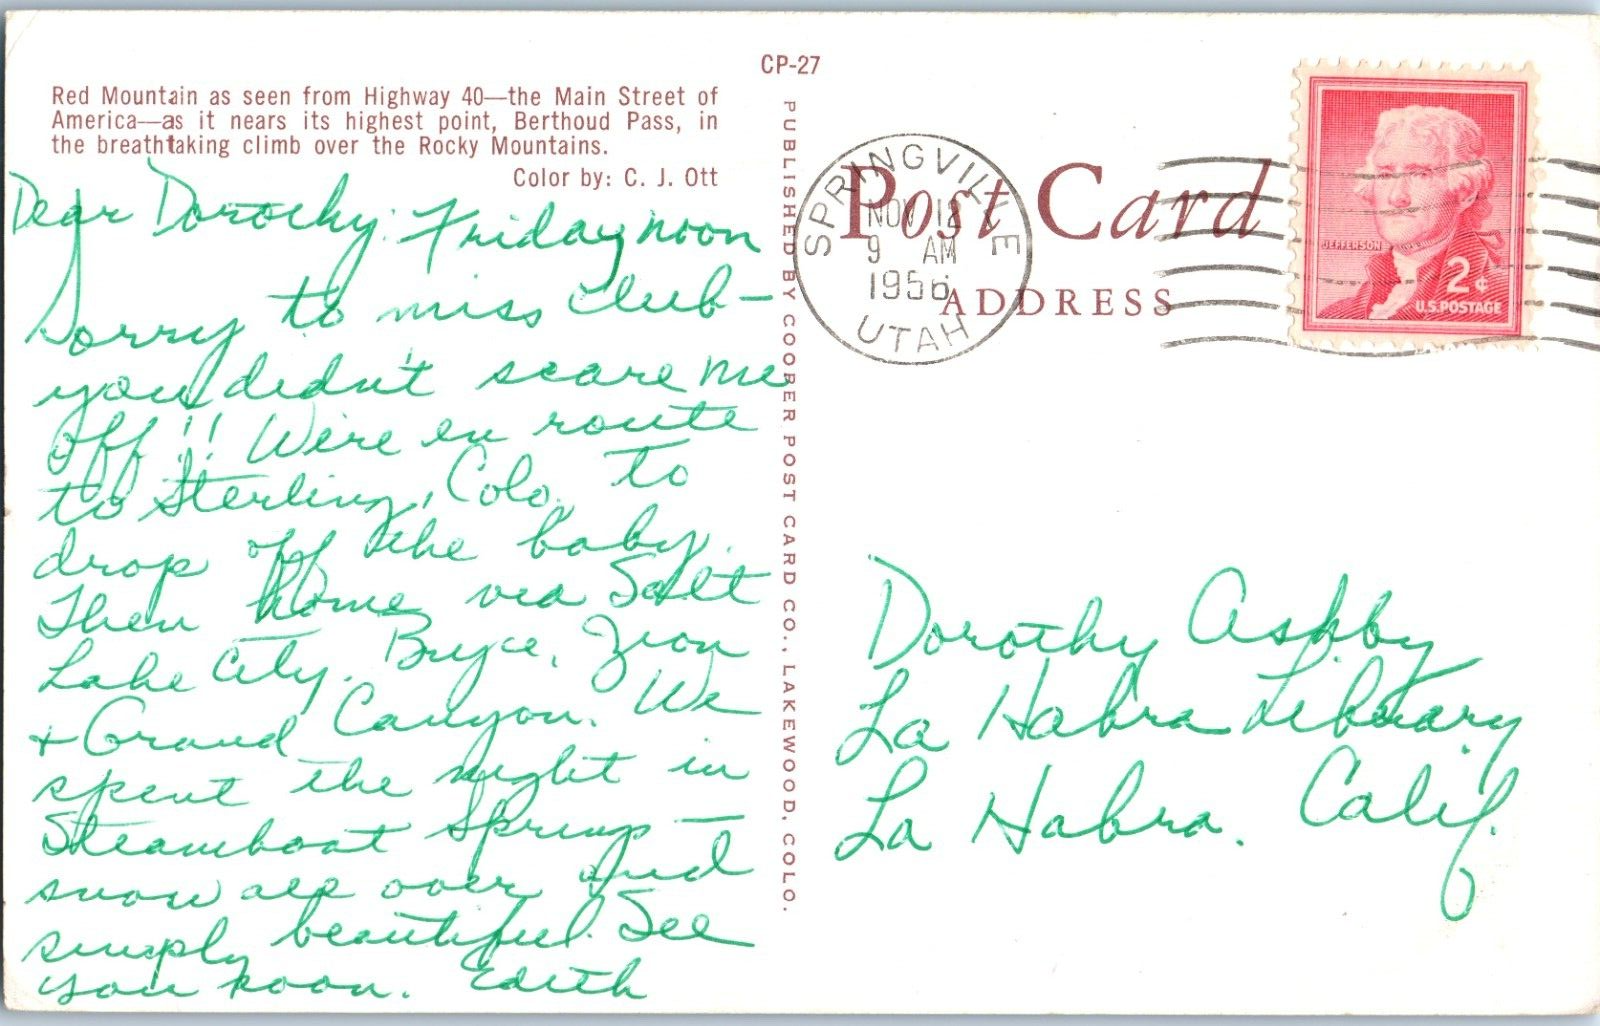 CP-27
Red Mountain as seen from Highway 40—the Main Street of
America—as it nears its highest point, Berthoud Pass, in
the breathtaking climb over the Rocky Mountains.
Color by: C. J. Ott
Dear Dorothy: Friday noon
Sorry to miss club—
you didn't scare me
off!! We're en route
to Sterling, Colo. to
drop off the baby.
Then home via Salt
Lake City, Bryce, Zion
+ Grand Canyon. We
spent the night in
Steamboat Springs—
snow all over and
simply beautiful. See
you soon. Edith
PUBLISHED BY COOPER POST CARD CO., LAKEWOOD, COLO.
Post Card
ADDRESS
SPRINGVILLE
NOV 12
9 AM
1956
UTAH
JEFFERSON
2¢
U.S.POSTAGE
Dorothy Ashby
La Habra Library
La Habra. Calif.